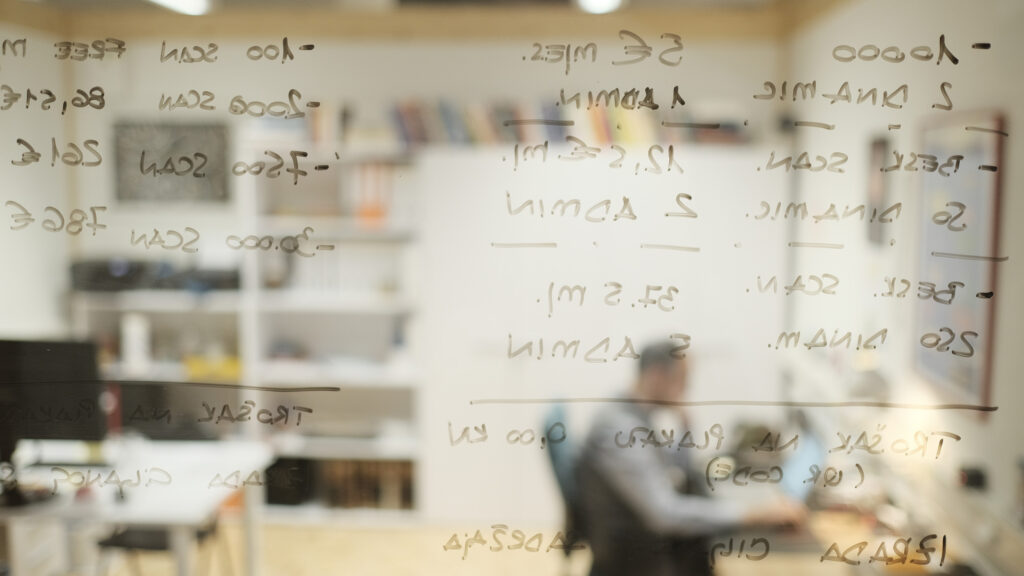 - 10000 5€ mjes.
2 DINAMIC 1 ADMIN.
- BESK. SCAN. 12,5€ mj.
50 DINAMIC. 2 ADMIN
- BESK. SCAN. 37.5 mj.
250 DINAM. 5 ADMIN
TROŠAK NA PLAKATU 0,00 KN
(QR CODE)
IZRADA
-100 SCAN FREE M
-2000 SCAN 86,51€
-7500 SCAN 261€
-30.000 SCAN 786€
TROŠAK NA